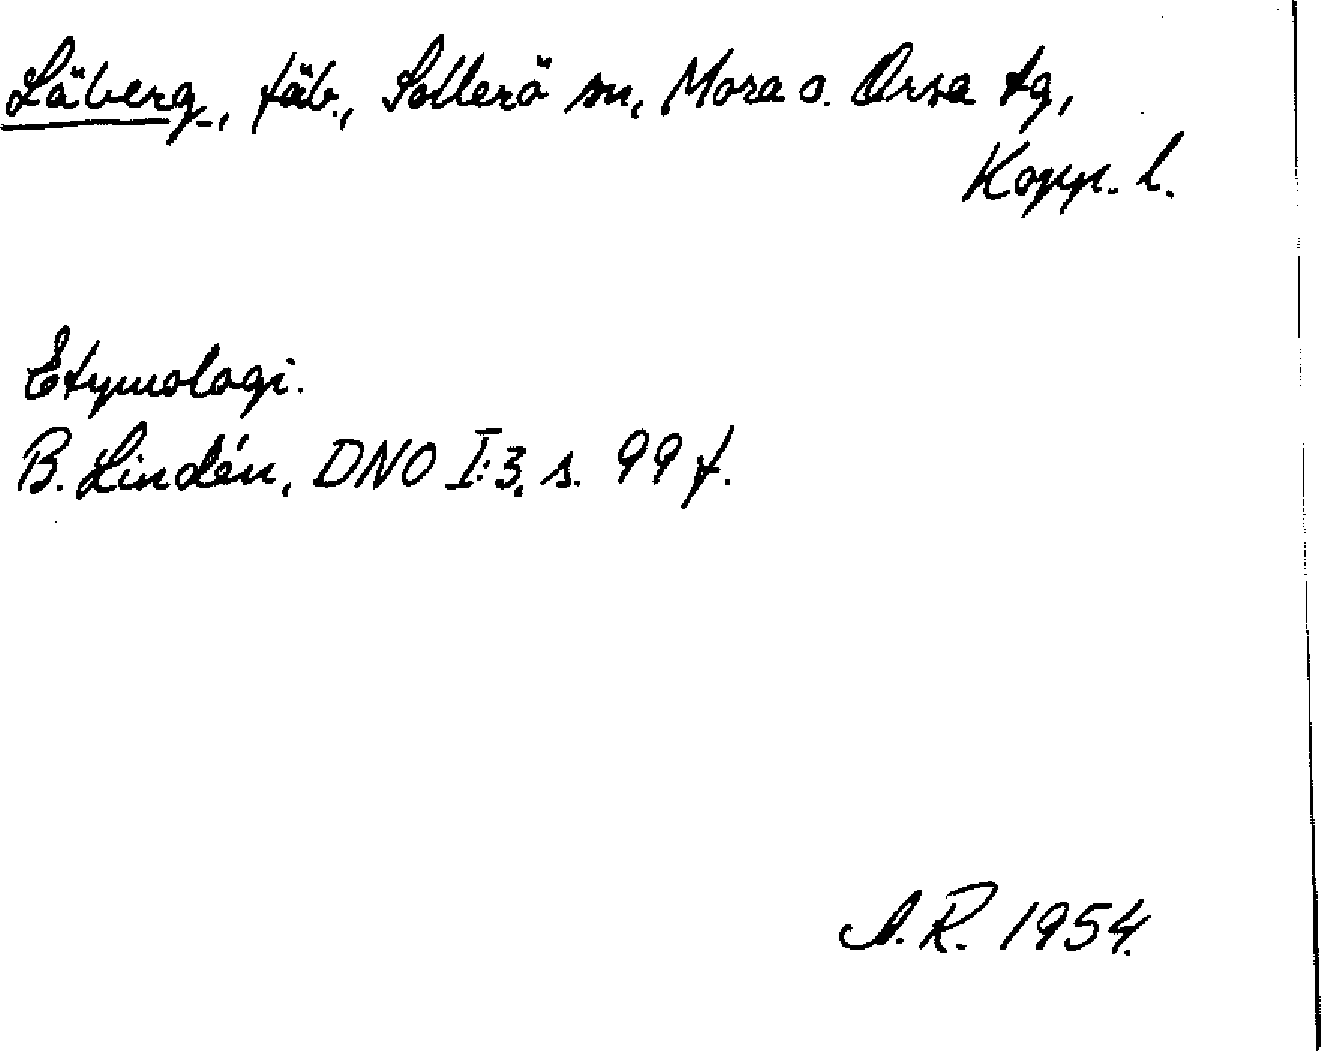 Läberg, fäb., Sollerö sn, Mora o. Orsa tg,
Kopp. l.
Etymologi.
B. Lindén, DNO I:3, s. 99 f.
A.R. 1954.